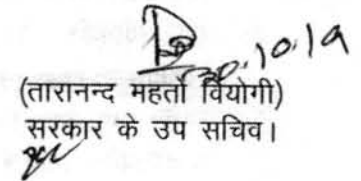 30.10.19
(तारानन्द महतो वियोगी)
सरकार के उप सचिव।